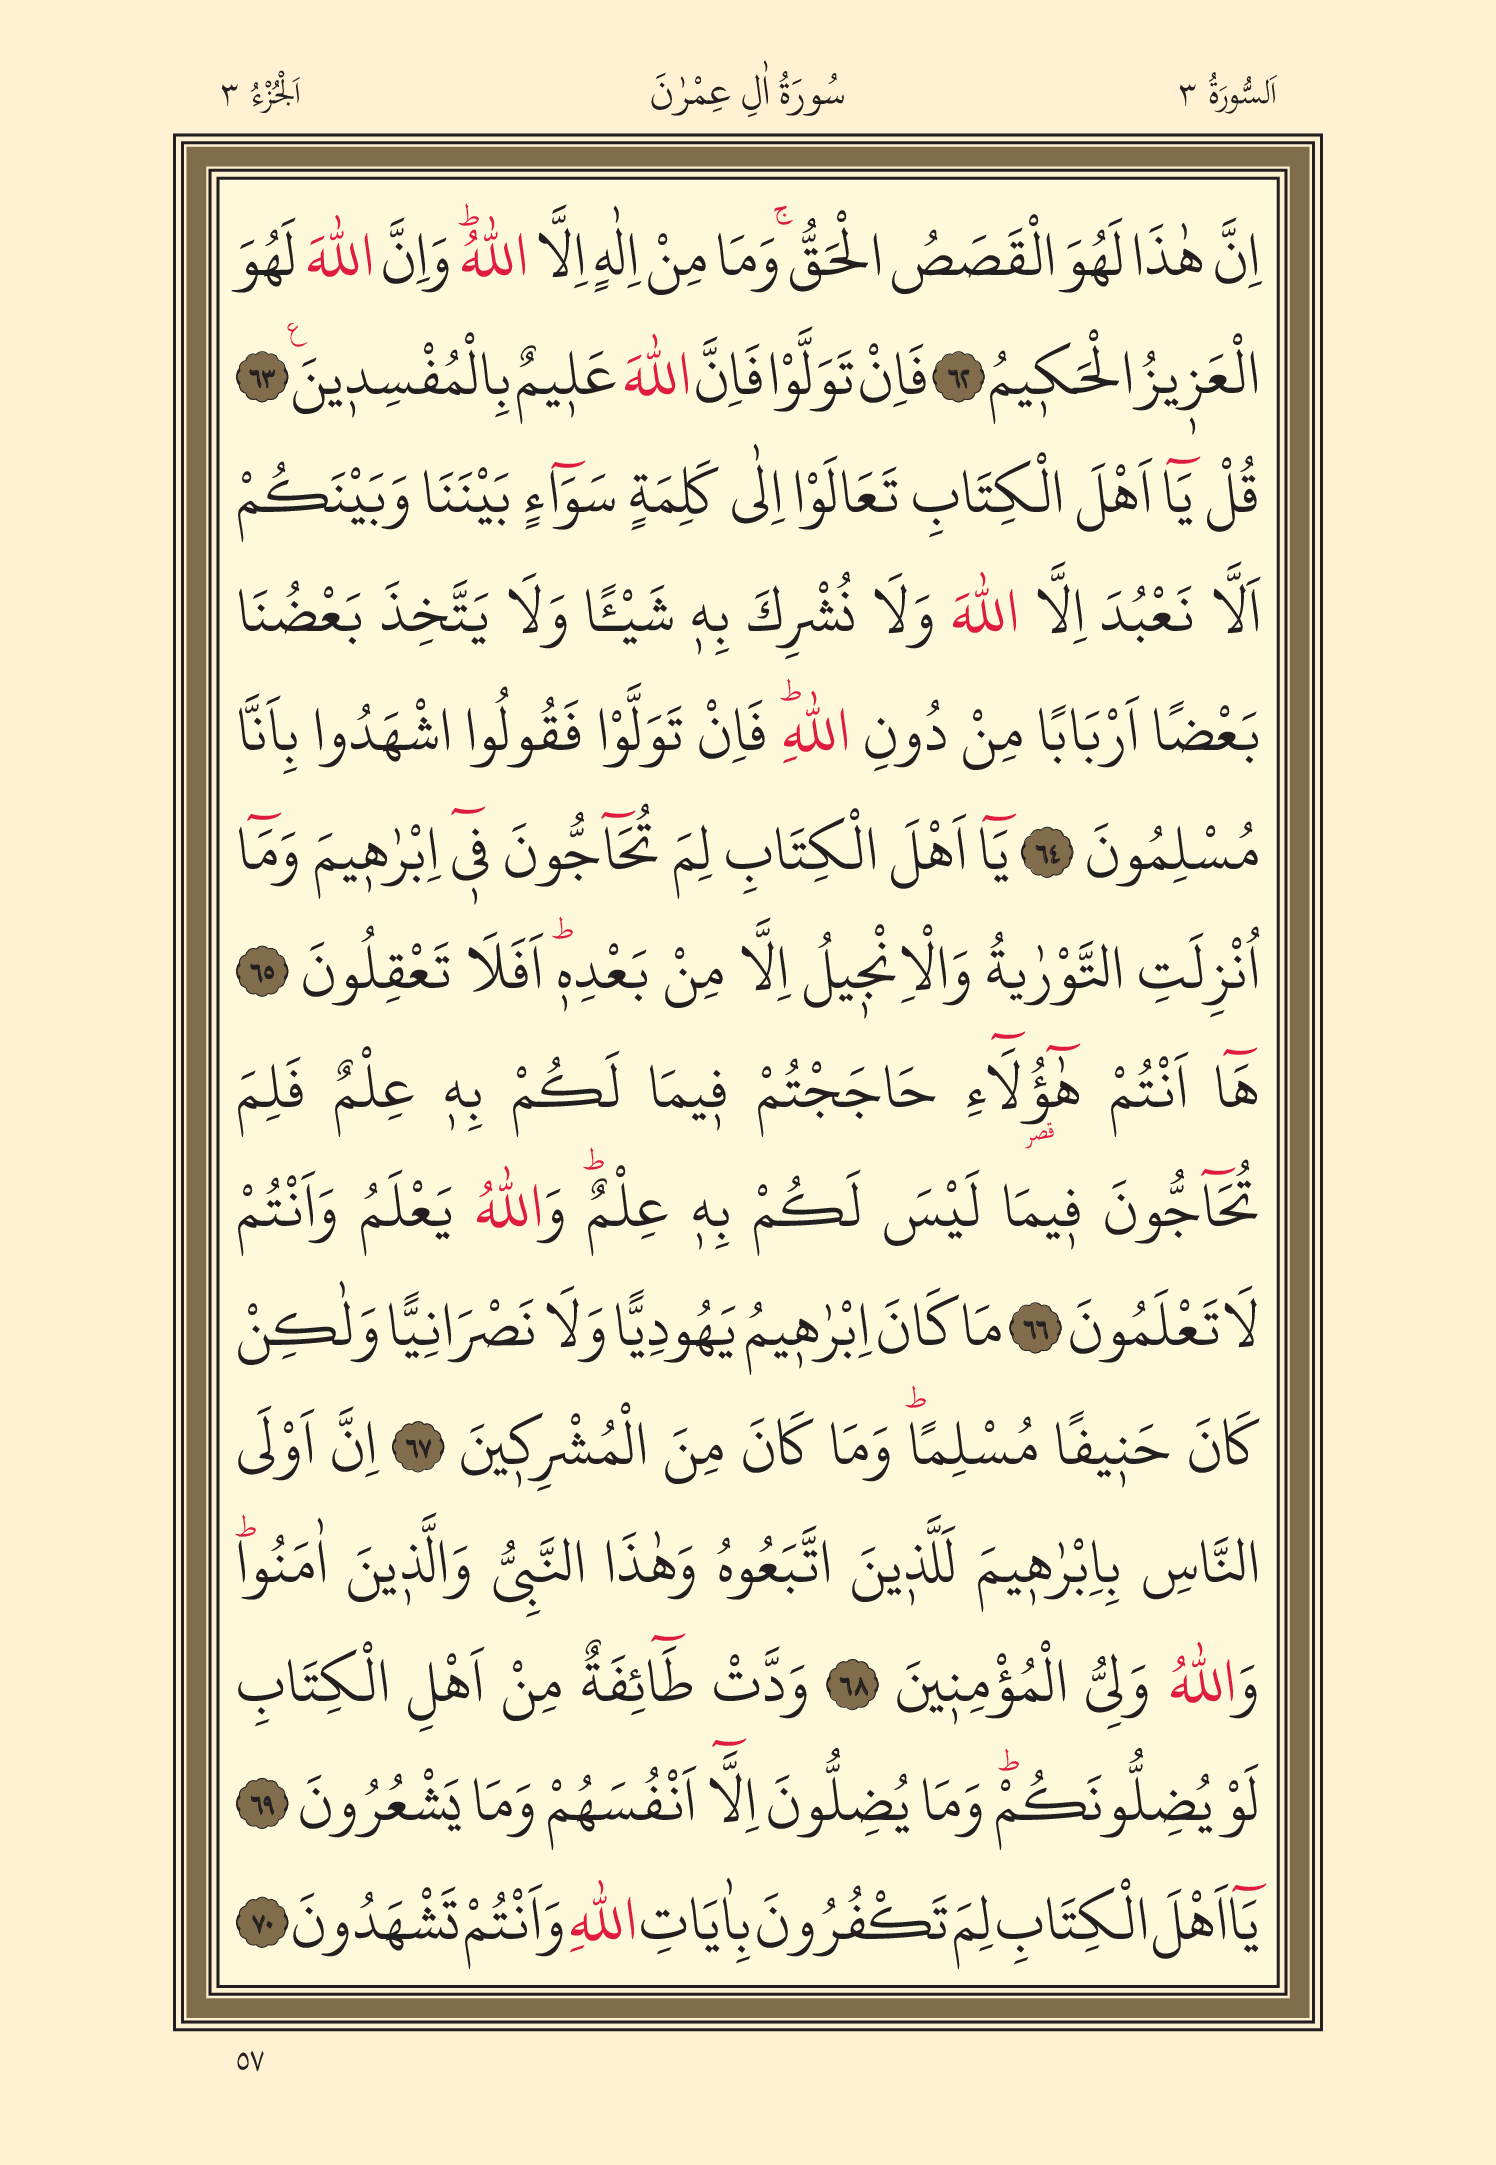 اَلسُّورَةُ ٣ سُورَةُ اٰلِ عِمْرٰنَ اَلْجُزْءُ ٣
اِنَّ هٰذَا لَهُوَ الْقَصَصُ الْحَقُّۚ وَمَا مِنْ اِلٰهٍ اِلَّا اللّٰهُۜ وَاِنَّ اللّٰهَ لَهُوَ
الْعَزٖيزُ الْحَكٖيمُ ﴿٦٢﴾ فَاِنْ تَوَلَّوْا فَاِنَّ اللّٰهَ عَلٖيمٌ بِالْمُفْسِدٖينَ ع ﴿٦٣﴾
قُلْ يَٓا اَهْلَ الْكِتَابِ تَعَالَوْا اِلٰى كَلِمَةٍ سَوَٓاءٍ بَيْنَنَا وَبَيْنَكُمْ
اَلَّا نَعْبُدَ اِلَّا اللّٰهَ وَلَا نُشْرِكَ بِهٖ شَيْـًٔا وَلَا يَتَّخِذَ بَعْضُنَا
بَعْضًا اَرْبَابًا مِنْ دُونِ اللّٰهِۜ فَاِنْ تَوَلَّوْا فَقُولُوا اشْهَدُوا بِاَنَّا
مُسْلِمُونَ ﴿٦٤﴾ يَٓا اَهْلَ الْكِتَابِ لِمَ تُحَٓاجُّونَ فٖٓى اِبْرٰهٖيمَ وَمَٓا
اُنْزِلَتِ التَّوْرٰيةُ وَالْاِنْجٖيلُ اِلَّا مِنْ بَعْدِهٖۜ اَفَلَا تَعْقِلُونَ ﴿٦٥﴾
هَٓا اَنْتُمْ هٰٓؤُ۬لَٓاءِ حَاجَجْتُمْ فٖيمَا لَكُمْ بِهٖ عِلْمٌ فَلِمَ
قصر
تُحَٓاجُّونَ فٖيمَا لَيْسَ لَكُمْ بِهٖ عِلْمٌۜ وَاللّٰهُ يَعْلَمُ وَاَنْتُمْ
لَا تَعْلَمُونَ ﴿٦٦﴾ مَا كَانَ اِبْرٰهٖيمُ يَهُودِيًّا وَلَا نَصْرَانِيًّا وَلٰكِنْ
كَانَ حَنٖيفًا مُسْلِمًاۜ وَمَا كَانَ مِنَ الْمُشْرِكٖينَ ﴿٦٧﴾ اِنَّ اَوْلَى
النَّاسِ بِاِبْرٰهٖيمَ لَلَّذٖينَ اتَّبَعُوهُ وَهٰذَا النَّبِىُّ وَالَّذٖينَ اٰمَنُواۜ
وَاللّٰهُ وَلِىُّ الْمُؤْمِنٖينَ ﴿٦٨﴾ وَدَّتْ طَٓائِفَةٌ مِنْ اَهْلِ الْكِتَابِ
لَوْ يُضِلُّونَكُمْۜ وَمَا يُضِلُّونَ اِلَّٓا اَنْفُسَهُمْ وَمَا يَشْعُرُونَ ﴿٦٩﴾
يَٓا اَهْلَ الْكِتَابِ لِمَ تَكْفُرُونَ بِاٰيَاتِ اللّٰهِ وَاَنْتُمْ تَشْهَدُونَ ﴿٧٠﴾
٥٧